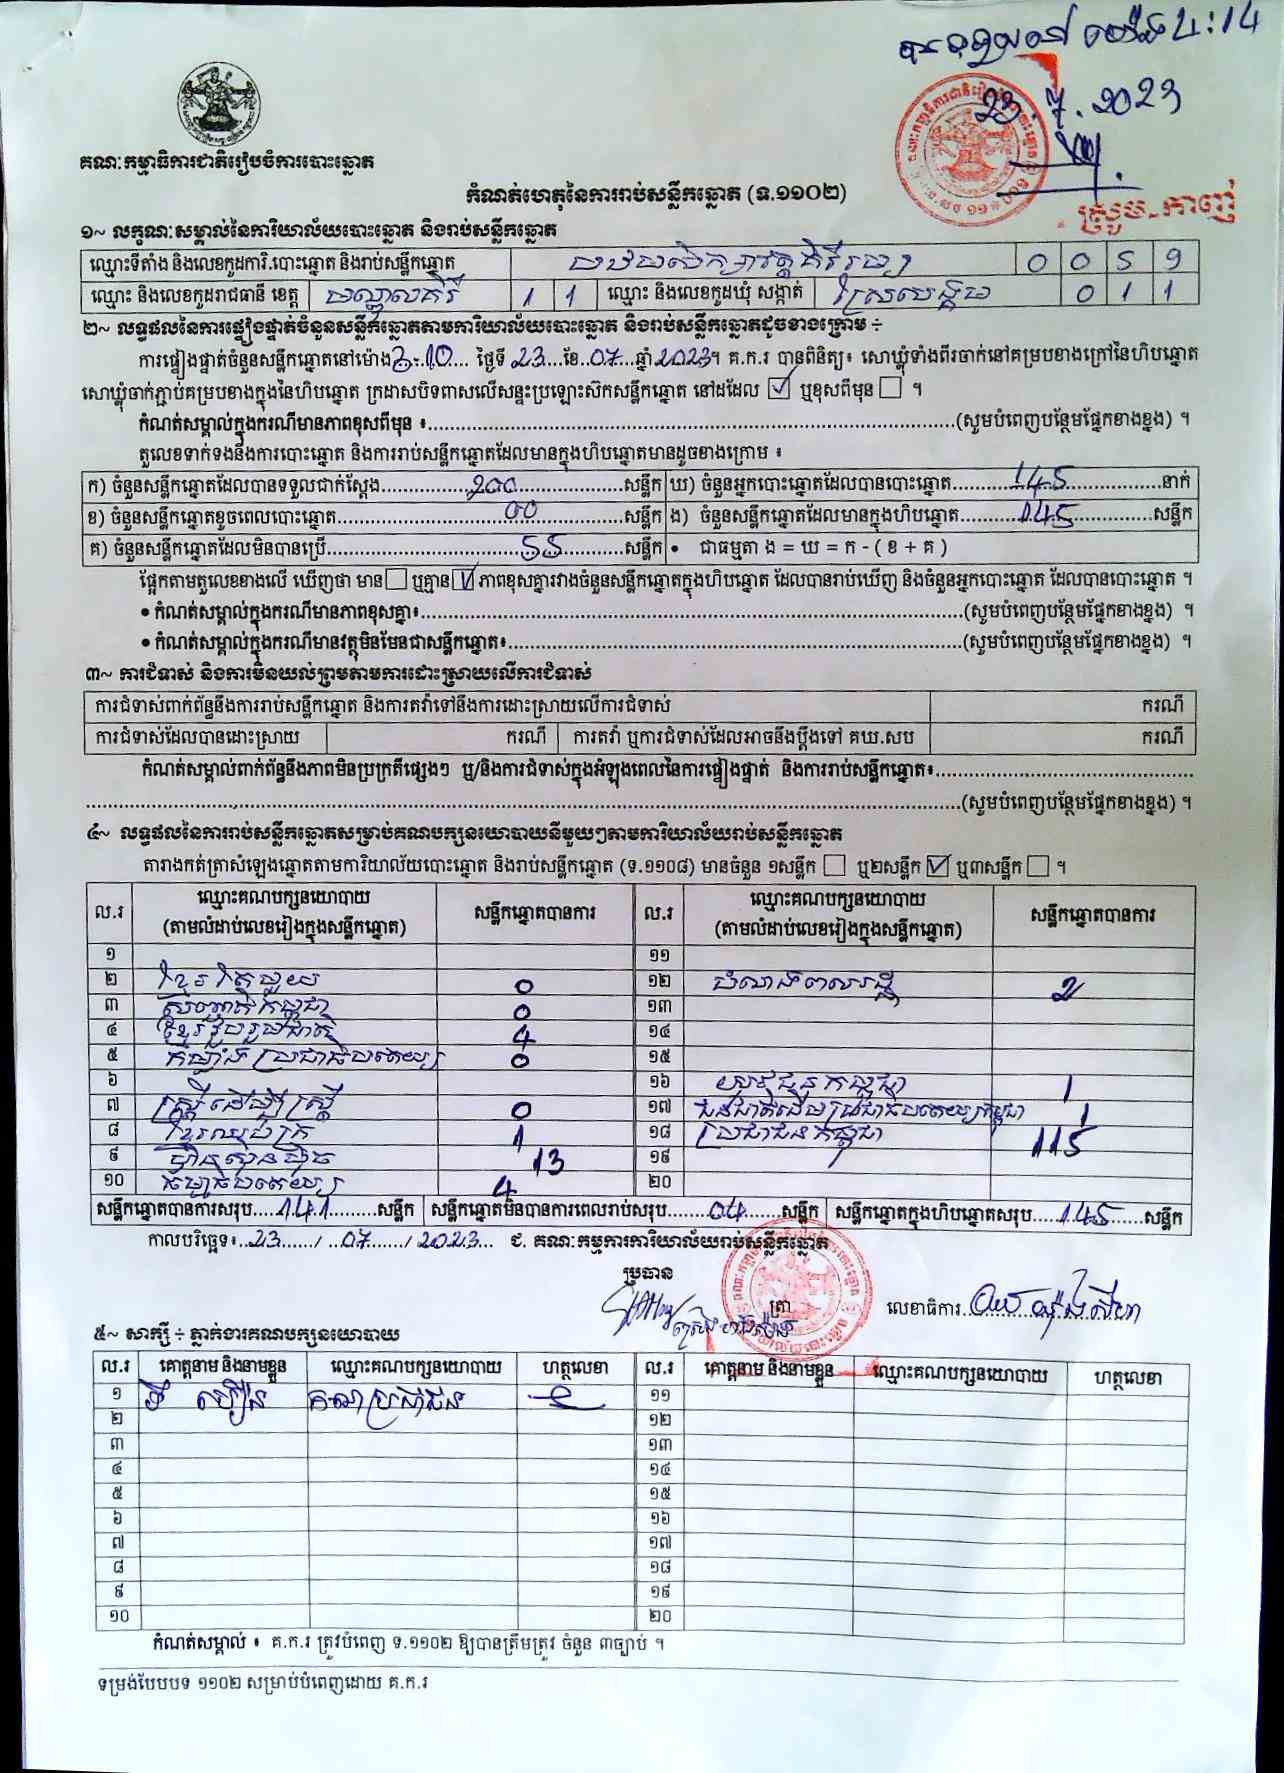 4:14
23.7.2023
គណៈកម្មាធិការជាតិរៀបចំការបោះឆ្នោត
កំណត់ហេតុនៃការរាប់សន្លឹកឆ្នោត (ទ.១១០២)
ស្រួម-កាញ់
១~ លក្ខណៈសម្គាល់នៃការិយាល័យបោះឆ្នោត និងរាប់សន្លឹកឆ្នោត
ឈ្មោះទីតាំង និងលេខកូដការិ.បោះឆ្នោត និងរាប់សន្លឹកឆ្នោត 0 0 5 9
ឈ្មោះ និងលេខកូដរាជធានី ខេត្ត មណ្ឌលគិរី 1 1 ឈ្មោះ និងលេខកូដឃុំ សង្កាត់ 0 1 1
២~ លទ្ធផលនៃការផ្ទៀងផ្ទាត់ចំនួនសន្លឹកឆ្នោតតាមការិយាល័យបោះឆ្នោត និងរាប់សន្លឹកឆ្នោតដូចខាងក្រោម ÷
ការផ្ទៀងផ្ទាត់ចំនួនសន្លឹកឆ្នោតនៅម៉ោង ថ្ងៃទី 23 ខែ 07 ឆ្នាំ 2023។ គ.ក.រ បានពិនិត្យ៖ សោឃ្លុំទាំងពីរចាក់នៅគម្របខាងក្រៅនៃហិបឆ្នោត
សោឃ្លុំចាក់ភ្ជាប់គម្របខាងក្នុងនៃហិបឆ្នោត ក្រដាសបិទពាសលើសន្ទះប្រឡោះស៊កសន្លឹកឆ្នោត នៅដដែល ☑ ឬខុសពីមុន ☐ ។
កំណត់សម្គាល់ក្នុងករណីមានភាពខុសពីមុន ៖ (សូមបំពេញបន្ថែមផ្នែកខាងខ្នង) ។
តួលេខទាក់ទងនឹងការបោះឆ្នោត និងការរាប់សន្លឹកឆ្នោតដែលមានក្នុងហិបឆ្នោតមានដូចខាងក្រោម ៖
ក) ចំនួនសន្លឹកឆ្នោតដែលបានទទួលជាក់ស្តែង 200 សន្លឹក ឃ) ចំនួនអ្នកបោះឆ្នោតដែលបានបោះឆ្នោត 145 នាក់
ខ) ចំនួនសន្លឹកឆ្នោតខូចពេលបោះឆ្នោត 00 សន្លឹក ង) ចំនួនសន្លឹកឆ្នោតដែលមានក្នុងហិបឆ្នោត 145 សន្លឹក
គ) ចំនួនសន្លឹកឆ្នោតដែលមិនបានប្រើ 55 សន្លឹក • ជាធម្មតា ង = ឃ = ក - ( ខ + គ )
ផ្អែកតាមតួលេខខាងលើ ឃើញថា មាន ☐ ឬគ្មាន ☑ ភាពខុសគ្នារវាងចំនួនសន្លឹកឆ្នោតក្នុងហិបឆ្នោត ដែលបានរាប់ឃើញ និងចំនួនអ្នកបោះឆ្នោត ដែលបានបោះឆ្នោត ។
• កំណត់សម្គាល់ក្នុងករណីមានភាពខុសគ្នា៖ (សូមបំពេញបន្ថែមផ្នែកខាងខ្នង) ។
• កំណត់សម្គាល់ក្នុងករណីមានវត្ថុមិនមែនជាសន្លឹកឆ្នោត៖ (សូមបំពេញបន្ថែមផ្នែកខាងខ្នង) ។
៣~ ការជំទាស់ និងការមិនយល់ព្រមតាមការដោះស្រាយលើការជំទាស់
ការជំទាស់ពាក់ព័ន្ធនឹងការរាប់សន្លឹកឆ្នោត និងការតវ៉ាទៅនឹងការដោះស្រាយលើការជំទាស់ ករណី
ការជំទាស់ដែលបានដោះស្រាយ ករណី ការតវ៉ា ឬការជំទាស់ដែលអាចនឹងប្តឹងទៅ គឃ.សប ករណី
កំណត់សម្គាល់ពាក់ព័ន្ធនឹងភាពមិនប្រក្រតីផ្សេងៗ ឬ/និងការជំទាស់ក្នុងអំឡុងពេលនៃការផ្ទៀងផ្ទាត់ និងការរាប់សន្លឹកឆ្នោត៖
(សូមបំពេញបន្ថែមផ្នែកខាងខ្នង) ។
៤~ លទ្ធផលនៃការរាប់សន្លឹកឆ្នោតសម្រាប់គណបក្សនយោបាយនីមួយៗតាមការិយាល័យរាប់សន្លឹកឆ្នោត
តារាងកត់ត្រាសំឡេងឆ្នោតតាមការិយាល័យបោះឆ្នោត និងរាប់សន្លឹកឆ្នោត (ទ.១១០៨) មានចំនួន ១សន្លឹក ☐ ឬ២សន្លឹក ☑ ឬ៣សន្លឹក ☐ ។
ល.រ ឈ្មោះគណបក្សនយោបាយ (តាមលំដាប់លេខរៀងក្នុងសន្លឹកឆ្នោត) សន្លឹកឆ្នោតបានការ ល.រ ឈ្មោះគណបក្សនយោបាយ (តាមលំដាប់លេខរៀងក្នុងសន្លឹកឆ្នោត) សន្លឹកឆ្នោតបានការ
១ ១១
២ ខ្មែរតែមួយ 0 ១២ 2
៣ 0 ១៣
៤ ខ្មែររួបរួមជាតិ 4 ១៤
៥ កម្លាំងប្រជាធិបតេយ្យ 0 ១៥
៦ ១៦ យុវជនកម្ពុជា 1
៧ ស្ត្រីដើម្បីស្ត្រី 0 ១៧ ជនជាតិដើមប្រជាធិបតេយ្យកម្ពុជា 1
៨ ខ្មែរឈប់ក្រ 1 ១៨ ប្រជាជនកម្ពុជា 115
៩ ហ្វ៊ុនស៊ិនប៉ិច 13 ១៩
១០ ធម្មាធិបតេយ្យ 4 ២០
សន្លឹកឆ្នោតបានការសរុប 141 សន្លឹក សន្លឹកឆ្នោតមិនបានការពេលរាប់សរុប 04 សន្លឹក សន្លឹកឆ្នោតក្នុងហិបឆ្នោតសរុប 145 សន្លឹក
កាលបរិច្ឆេទ៖ 23 / 07 / 2023 ជ. គណៈកម្មការការិយាល័យរាប់សន្លឹកឆ្នោត
ប្រធាន
ត្រា លេខាធិការ
៥~ សាក្សី ÷ ភ្នាក់ងារគណបក្សនយោបាយ
ល.រ គោត្តនាម និងនាមខ្លួន ឈ្មោះគណបក្សនយោបាយ ហត្ថលេខា ល.រ គោត្តនាម និងនាមខ្លួន ឈ្មោះគណបក្សនយោបាយ ហត្ថលេខា
១ គណប្រជាជន ១១
២ ១២
៣ ១៣
៤ ១៤
៥ ១៥
៦ ១៦
៧ ១៧
៨ ១៨
៩ ១៩
១០ ២០
កំណត់សម្គាល់ ៖ គ.ក.រ ត្រូវបំពេញ ទ.១១០២ ឱ្យបានត្រឹមត្រូវ ចំនួន ៣ច្បាប់ ។
ទម្រង់បែបបទ ១១០២ សម្រាប់បំពេញដោយ គ.ក.រ